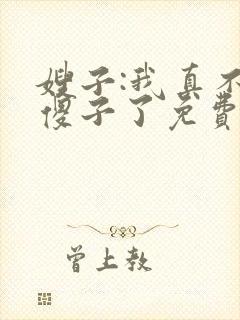 嫂子:我真不
傻子了免费
曾上教